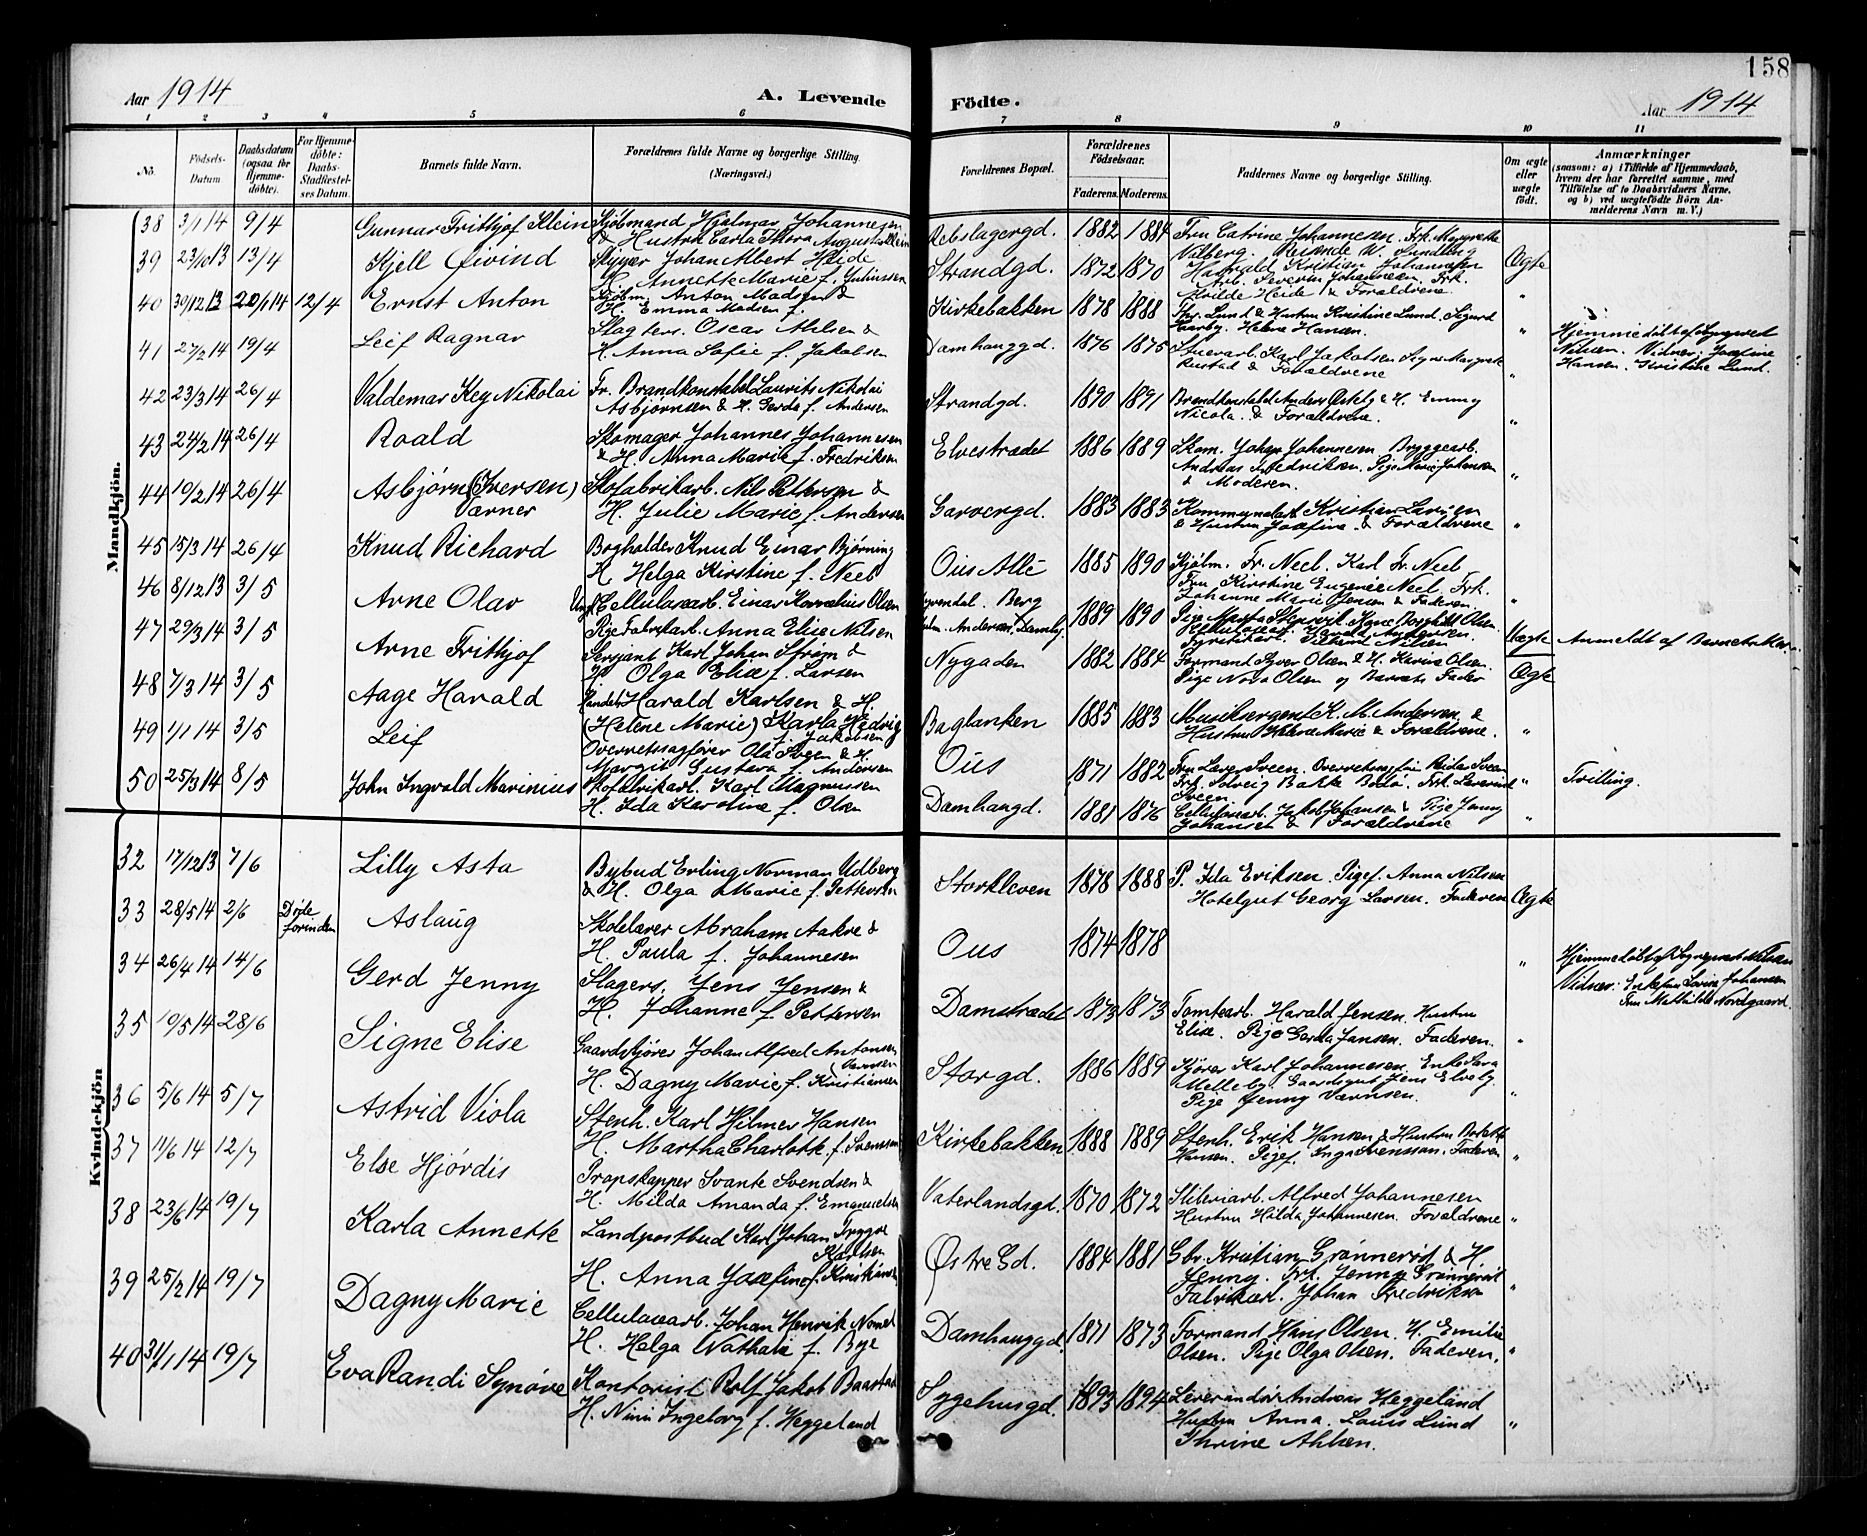 158
Aar 1914
A. Levende
Födte.
Aar 1914
1 2 3 4 5 6 7 8 9 10 11
No.
Födsels-Datum
Daabsdatum (ogsaa for Hjemme-döbte).
For Hjemme-döbte: Daabs-Stadfæstel-ses Datum.
Barnets fulde Navn.
Forældrenes fulde Navne og borgerlige Stilling.
(Næringsvei.)
Forældrenes Bopæl.
Forældrenes Födselsaar.
Faderens. Moderens.
Faddernes Navne og borgerlige Stilling.
Om ægte eller uægte födt.
Anmærkninger
(saasom: a) i Tilfælde af Hjemmedaab,
hvem der har forrettet samme, med
Tilföielse af to Daabsvidners Navne,
og b) ved uægtefödte Börn An-
melderens Navn m. V.)
Mandkjön.
38 3/1 14 9/4 Gunnar Frithjof Klein Kjøbmand Hjalmar Johannesen
& Hustru Carla Thora Augusta Klein
Rebslagergd. 1882 1884 Fru Catrine Johannesen. Frk. Margrethe
39 23/10 13 13/4 Kjell Øivind Skipper Johan Albert Heide
H. Annette Marie f. Juliussen
Strandgd. 1872 1870 Harald Kristian Johannesen Ægte
40 30/12 13 20/1 14 12/4 Ernst Anton Kjøbm. Anton Madsen &
H. Emma Madsen f.
Kirkebakken 1878 1888 Lund & Hustru Kristine Lund. Sigurd
Helene Hansen.
Hjemmedøbt af Sognepræst
Nilsen. Vidner: Josefine
Hansen. Kristine Lund.
41 27/2 14 19/4 Leif Ragnar Slagters. Oscar Ahlsen &
H. Anna Sofie f. Jakobsen
Damhauggd. 1876 1875 Stuerarb. Karl Jakobsen Signe Margrethe
Rustad & Forældrene
42 23/3 14 26/4 Valdemar Key Nikolai Fr. Brandkonstabel Laurits Nikolai
Asbjørnsen & H. Gerda f. Andersen
Strandgd. 1890 1891 Brandkonstabel Anders Østby & H. Emmy
Nicola. & Forældrene.
43 24/2 14 26/4 Roald Skomager Johannes Johannesen
& H. Anna Marie f. Fredriksen
Elvestrædet 1886 1889 Skom. Johan Johannesen Bryggearb.
Andreas Fredriksen. Pige Marie Johansen
& Moderen.
44 19/2 14 26/4 Asbjørn (Iversen)
Værner
Skofabrikarb. Nils Pettersen &
H. Julie Marie f. Andersen
Garvergd. 1883 1883 Kommunalarb. Kristian Larsen
& Hustru Josefine & Forældrene
45 15/3 14 26/4 Knud Richard Bogholder Knud Einar Bjørning
H. Helga Kirstine f. Neel
Ous Allé 1885 1890 Kjøbm. Fr. Neel. Karl Fr. Neel
Fru Kirstine Eugenie Neel, Frk.
Johanne Marie Jensen & Faderen.
46 8/12 13 3/5 Arne Olav Ungk. Cellulosearb. Einar Kornelius Olsen
Pige Fabrikarb. Anna Elise Nilsen
Berg 1889 1890
Uægte Anmeldt af Barnets Mor
47 29/3 14 3/5 Arne Frithjof Sersjant Karl Johan Strøm &
H. Olga Elise f. Larsen
Nygaden 1882 1884 Formand Syver Olsen & H. Karine Olsen.
Pige Nora Olsen og Barnets Fader Ægte
48 7/3 14 3/5 Aage Harald Harald Karlsen & H.
(Helene Marie) Karla Hedvig
f. Jakobsen
Bagbanken 1885 1883 Musiksergent K. M. Andersen &
Hustru Marie & Forældrene.
49 1/1 14 3/5 Leif Overretssagfører Ola Sveen & H.
Margit Gustava f. Andersen
Ous 1871 1882 Fru Sveen. Overretssagfører Reidar Sveen
Frk. Solveig Bakke Bodø. Frk.
Sveen
Tvilling.
50 25/3 14 8/5 John Ingvald Marinius Skofabrikarb. Karl Magnussen
H. Ida Karoline f. Olsen
Damhaugd. 1881 1876 Cellulosearb. Jakob Johansen & Pige Jenny
Johansen & Forældrene
Kvindekjön
32 17/12 13 7/6 Lilly Asta Bybud Erling Norman Udberg
& H. Olga Marie f. Pettersen
Storkleven 1878 1888 P. Ida Eriksen. Pigef. Anna Nilsen
Hotelgut Georg Larsen. Faderen Ægte
33 28/5 14 2/6 Døde forinden Aslaug Skolelærer Abraham Aakre &
H. Paula f. Johannesen
Ous 1874 1878
Hjemmedøbt af Sognepræst Nilsen
Vidner: Enkefru Lovise Johansen
Fru Mathilde Nordgaard.
34 26/4 14 14/6 Gerd Jenny Slagers. Jens Jensen &
H. Johanne f. Pettersen
Damstrædet 1873 1873 Tomtearb. Harald Jensen. Hustru
Elise. Pige Gerda Jansen. Faderen.
35 19/5 14 28/6 Signe Elise Gaardskjører Johan Alfred Antonsen
H. Dagny Marie f. Kristiansen
Storgd. 1886 1889 Kjører Karl Johannesen. Enke
Melleby. Gaardsgut Jens Elveby.
Pige Jenny Værnsen.
36 5/6 14 5/7 Astrid Viola Stenh. Karl Hilmer Hansen
H. Martha Charlotte f. Svensson
Kirkebakken 1888 1889 Stenh. Erik Hansen & Hustru
Hansen. Pigef. Inga Svensson. Faderen
37 11/6 14 12/7 Else Hjørdis Propskapper Svante Svendsen &
H. Milda Amanda f. Emanuelsen
Vaterlandsgd. 1870 1872 Sliberiarb. Alfred Johannesen
Hustru Hilda Johannesen. Forældrene
38 23/6 14 19/7 Karla Annette Landpostbud Karl Johan Trygve
Karlsen
H. Anna Josefine f. Kristiansen
Østre Gd. 1884 1881 Gbr. Kristian Grønnerød & H.
Jenny. Frk. Jenny Grønnerød
Fabrikarb. Johan Fredriksen
39 25/2 14 19/7 Dagny Marie Cellulosearb. Johan Henrik
H. Helga Nathalie f. Bye
Damhauggd. 1871 1873 Formand Hans Olsen. H. Emilie
Olsen. Pige Olga Olsen. Faderen.
40 31/1 14 19/7 Eva Randi Synøve Kontorist Rolf Jakob Baastad
H. Nini Ingeborg f. Heggelund
Sygehusgd. 1893 1894 Leverandør Andreas Heggelund
Hustru Anna. Louis Lund
Thrine Ahlsen.